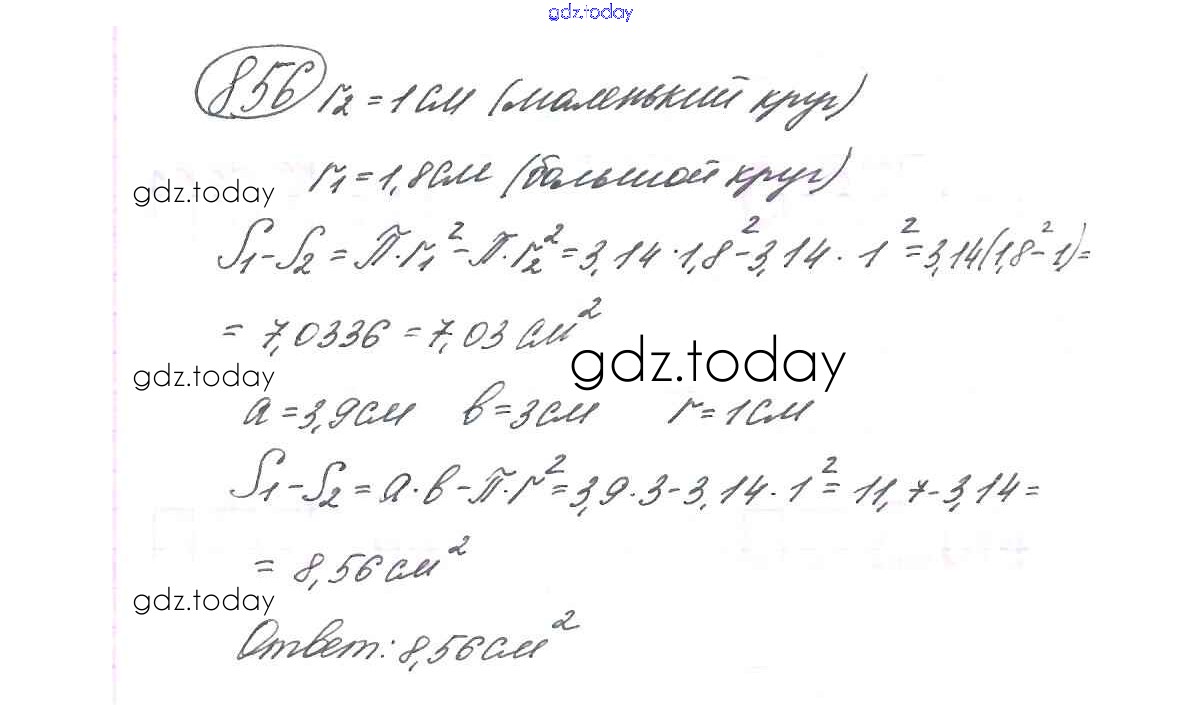 gdz.today
856 r₂ = 1 см (маленький круг)
r₁ = 1,8 см (большой круг)
gdz.today
S₁ - S₂ = π · r₁² - π · r₂² = 3,14 · 1,8² - 3,14 · 1² = 3,14(1,8² - 1) =
= 7,0336 = 7,03 см²
gdz.today
gdz.today
a = 3,9 см b = 3 см r = 1 см
S₁ - S₂ = a · b - π · r² = 3,9 · 3 - 3,14 · 1² = 11,7 - 3,14 =
= 8,56 см²
gdz.today
Ответ: 8,56 см²